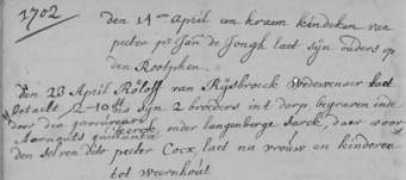 1702
den 14en April een kraem kindeken van
peeter pr Jan de Jongh laet sijn ouders op
den Rootphen
Den 23 April Röloff van Rijsbroeck Wedewenaer laet
betaelt 2-10 sijn 2 broeders int dorp begraven inde
kerck onder langenberge sarck, daer voor
peeter Cocx, laet na vrouw en kinderen
tot weernhout